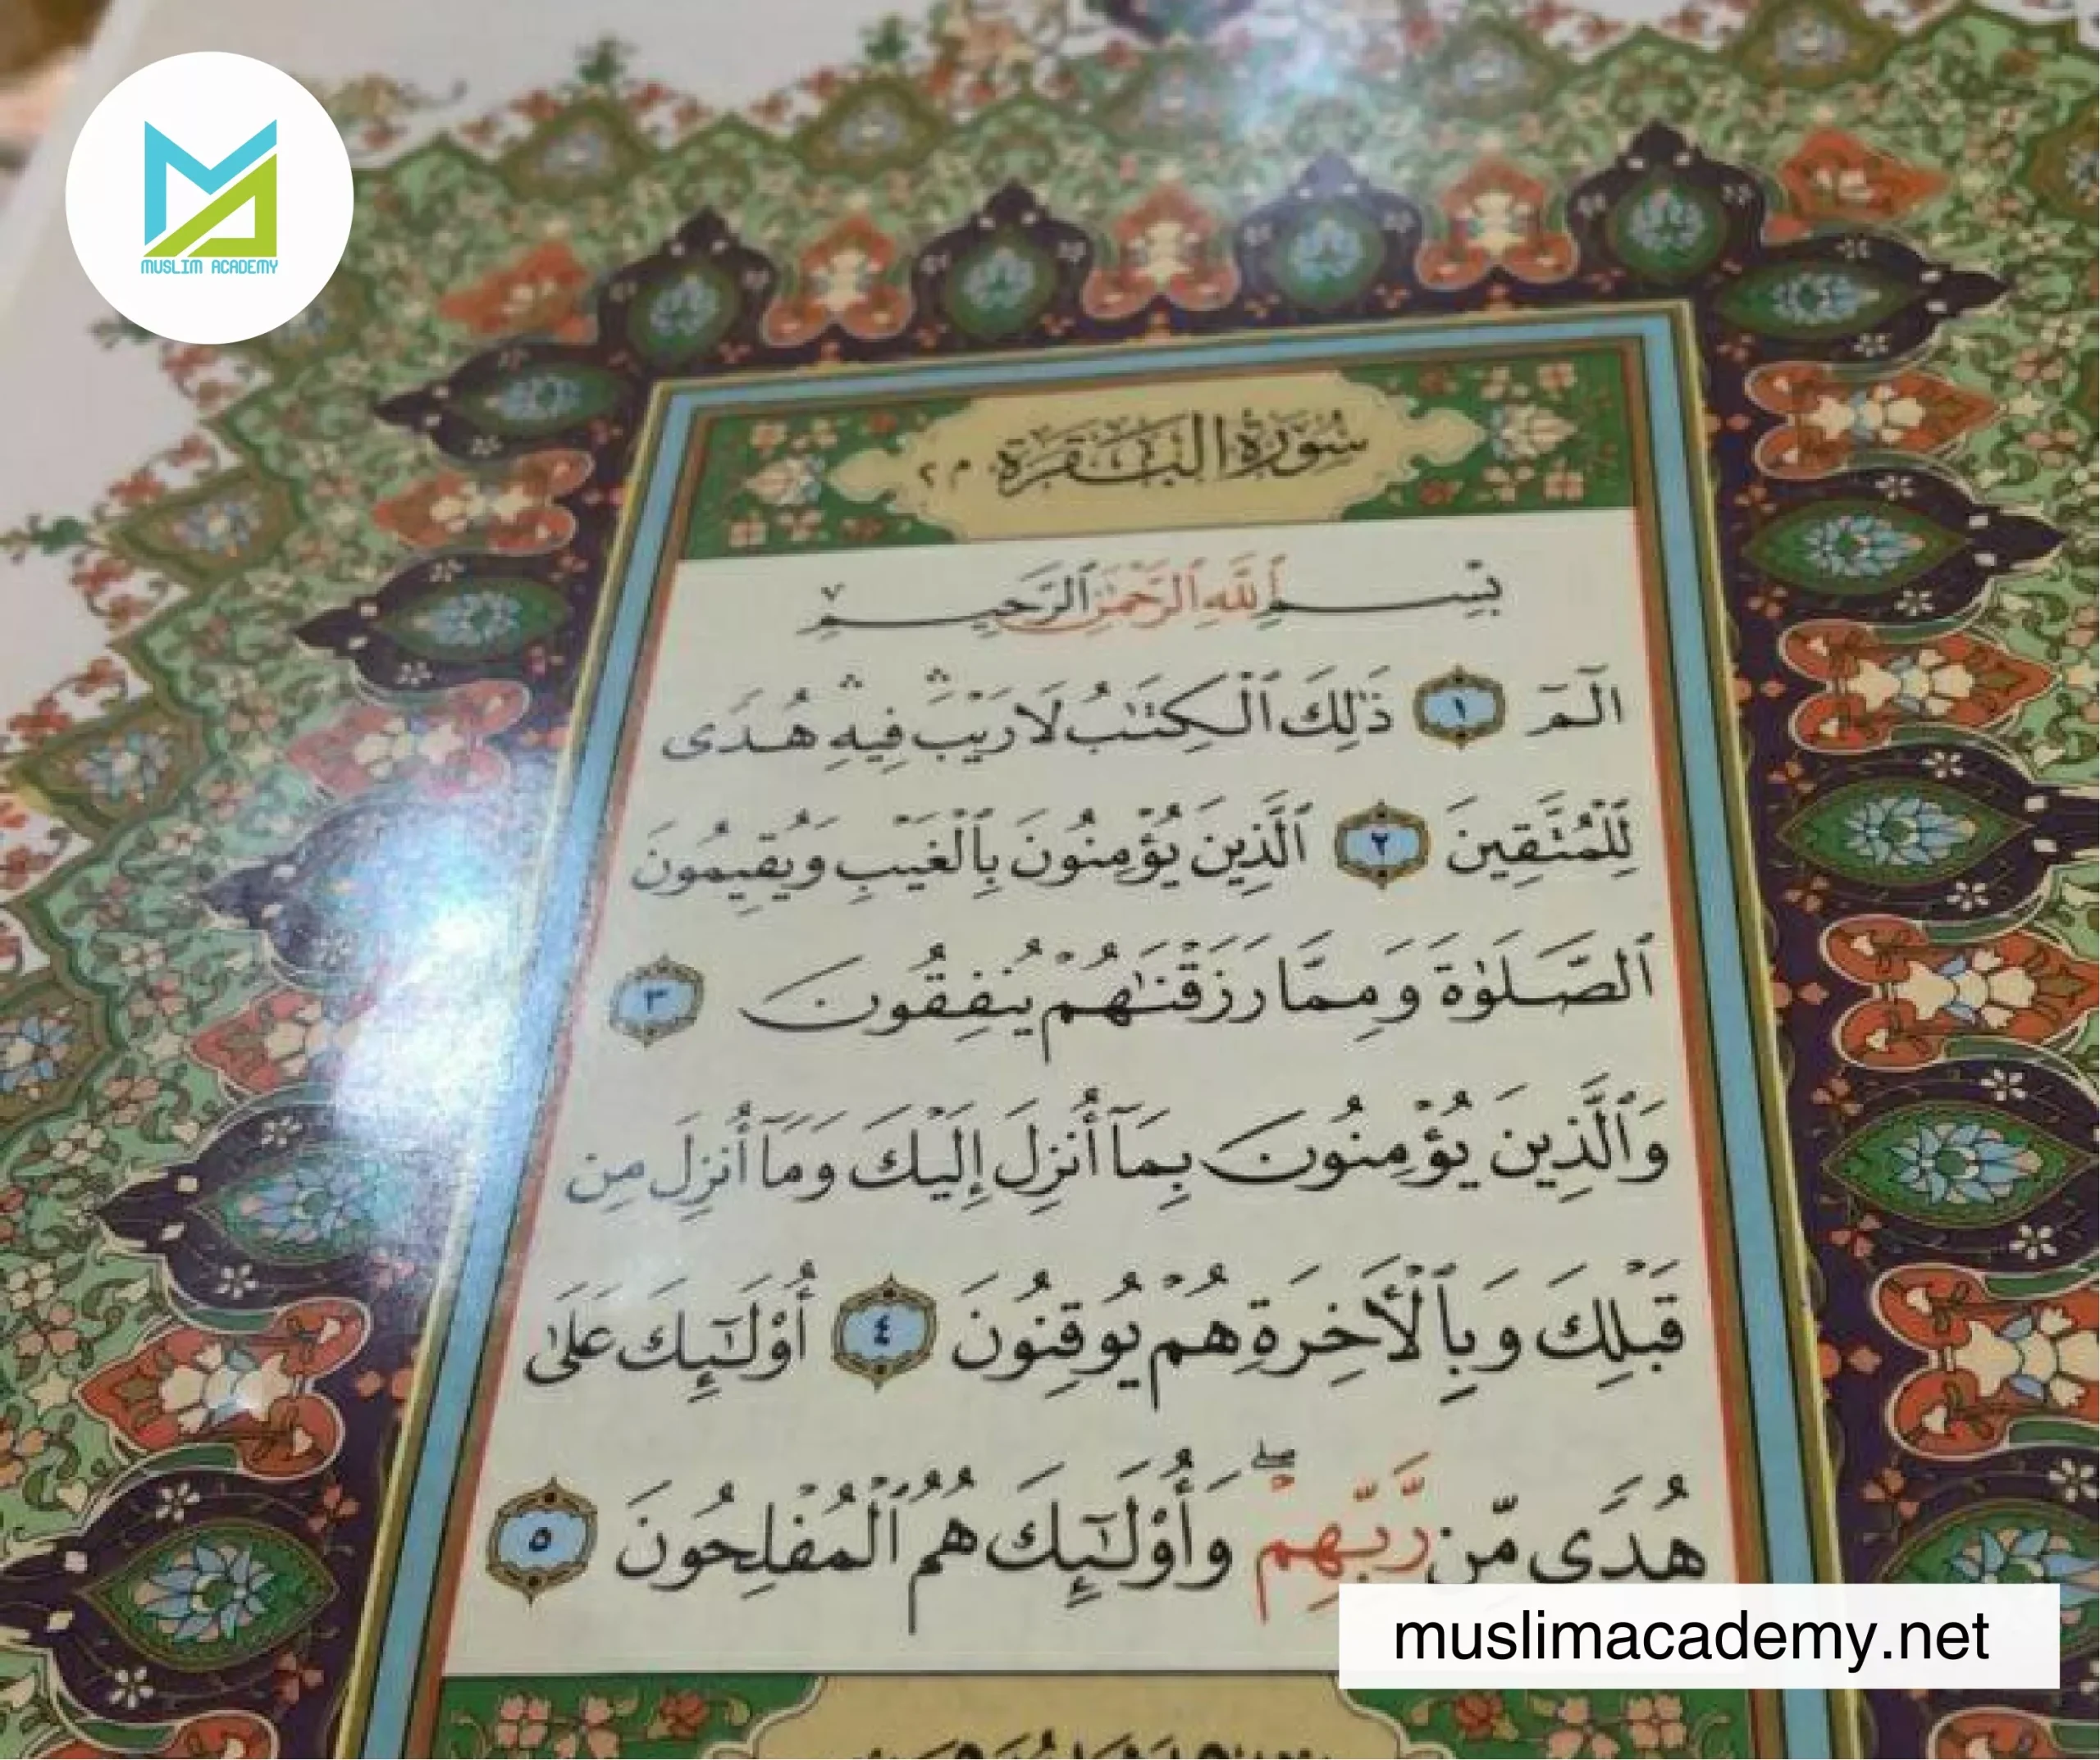 MUSLIM ACADEMY
سُورَةُ الْبَقَرَةِ م ٢
بِسْمِ ٱللَّهِ ٱلرَّحْمَٰنِ ٱلرَّحِيمِ ٧
الٓمٓ ١ ذَٰلِكَ ٱلْكِتَٰبُ لَا رَيْبَ ۛ فِيهِ ۛ هُدًى
لِّلْمُتَّقِينَ ٢ ٱلَّذِينَ يُؤْمِنُونَ بِٱلْغَيْبِ وَيُقِيمُونَ
ٱلصَّلَوٰةَ وَمِمَّا رَزَقْنَٰهُمْ يُنفِقُونَ ٣
وَٱلَّذِينَ يُؤْمِنُونَ بِمَآ أُنزِلَ إِلَيْكَ وَمَآ أُنزِلَ مِن
قَبْلِكَ وَبِٱلْأَخِرَةِ هُمْ يُوقِنُونَ ٤ أُوْلَٰٓئِكَ عَلَىٰ
هُدًى مِّن رَّبِّهِمْ ۖ وَأُوْلَٰٓئِكَ هُمُ ٱلْمُفْلِحُونَ ٥
muslimacademy.net